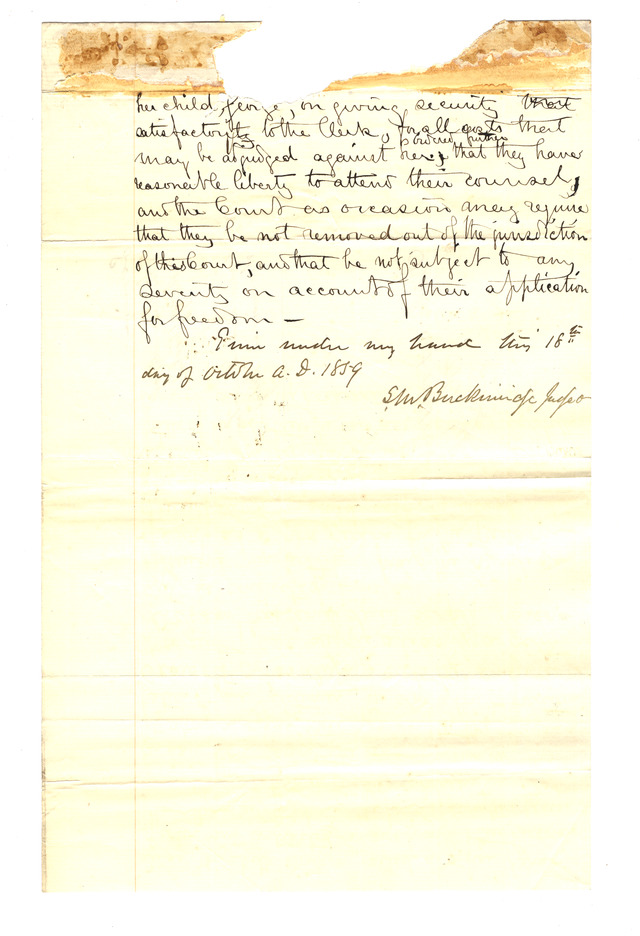 her child, George, on giving security that
satisfactorily to the Clerk, for all costs that
ordered further
may be adjudged against her, that they have
reasonable liberty to attend their counsel,
and the Court as occasion may require
that they be not removed out of the jurisdiction
of this Court, and that be not subject to any
severity on account of their application
for freedom —
Given under my hand this 18th
day of October A.D. 1859
S.M. Breckinridge Judge